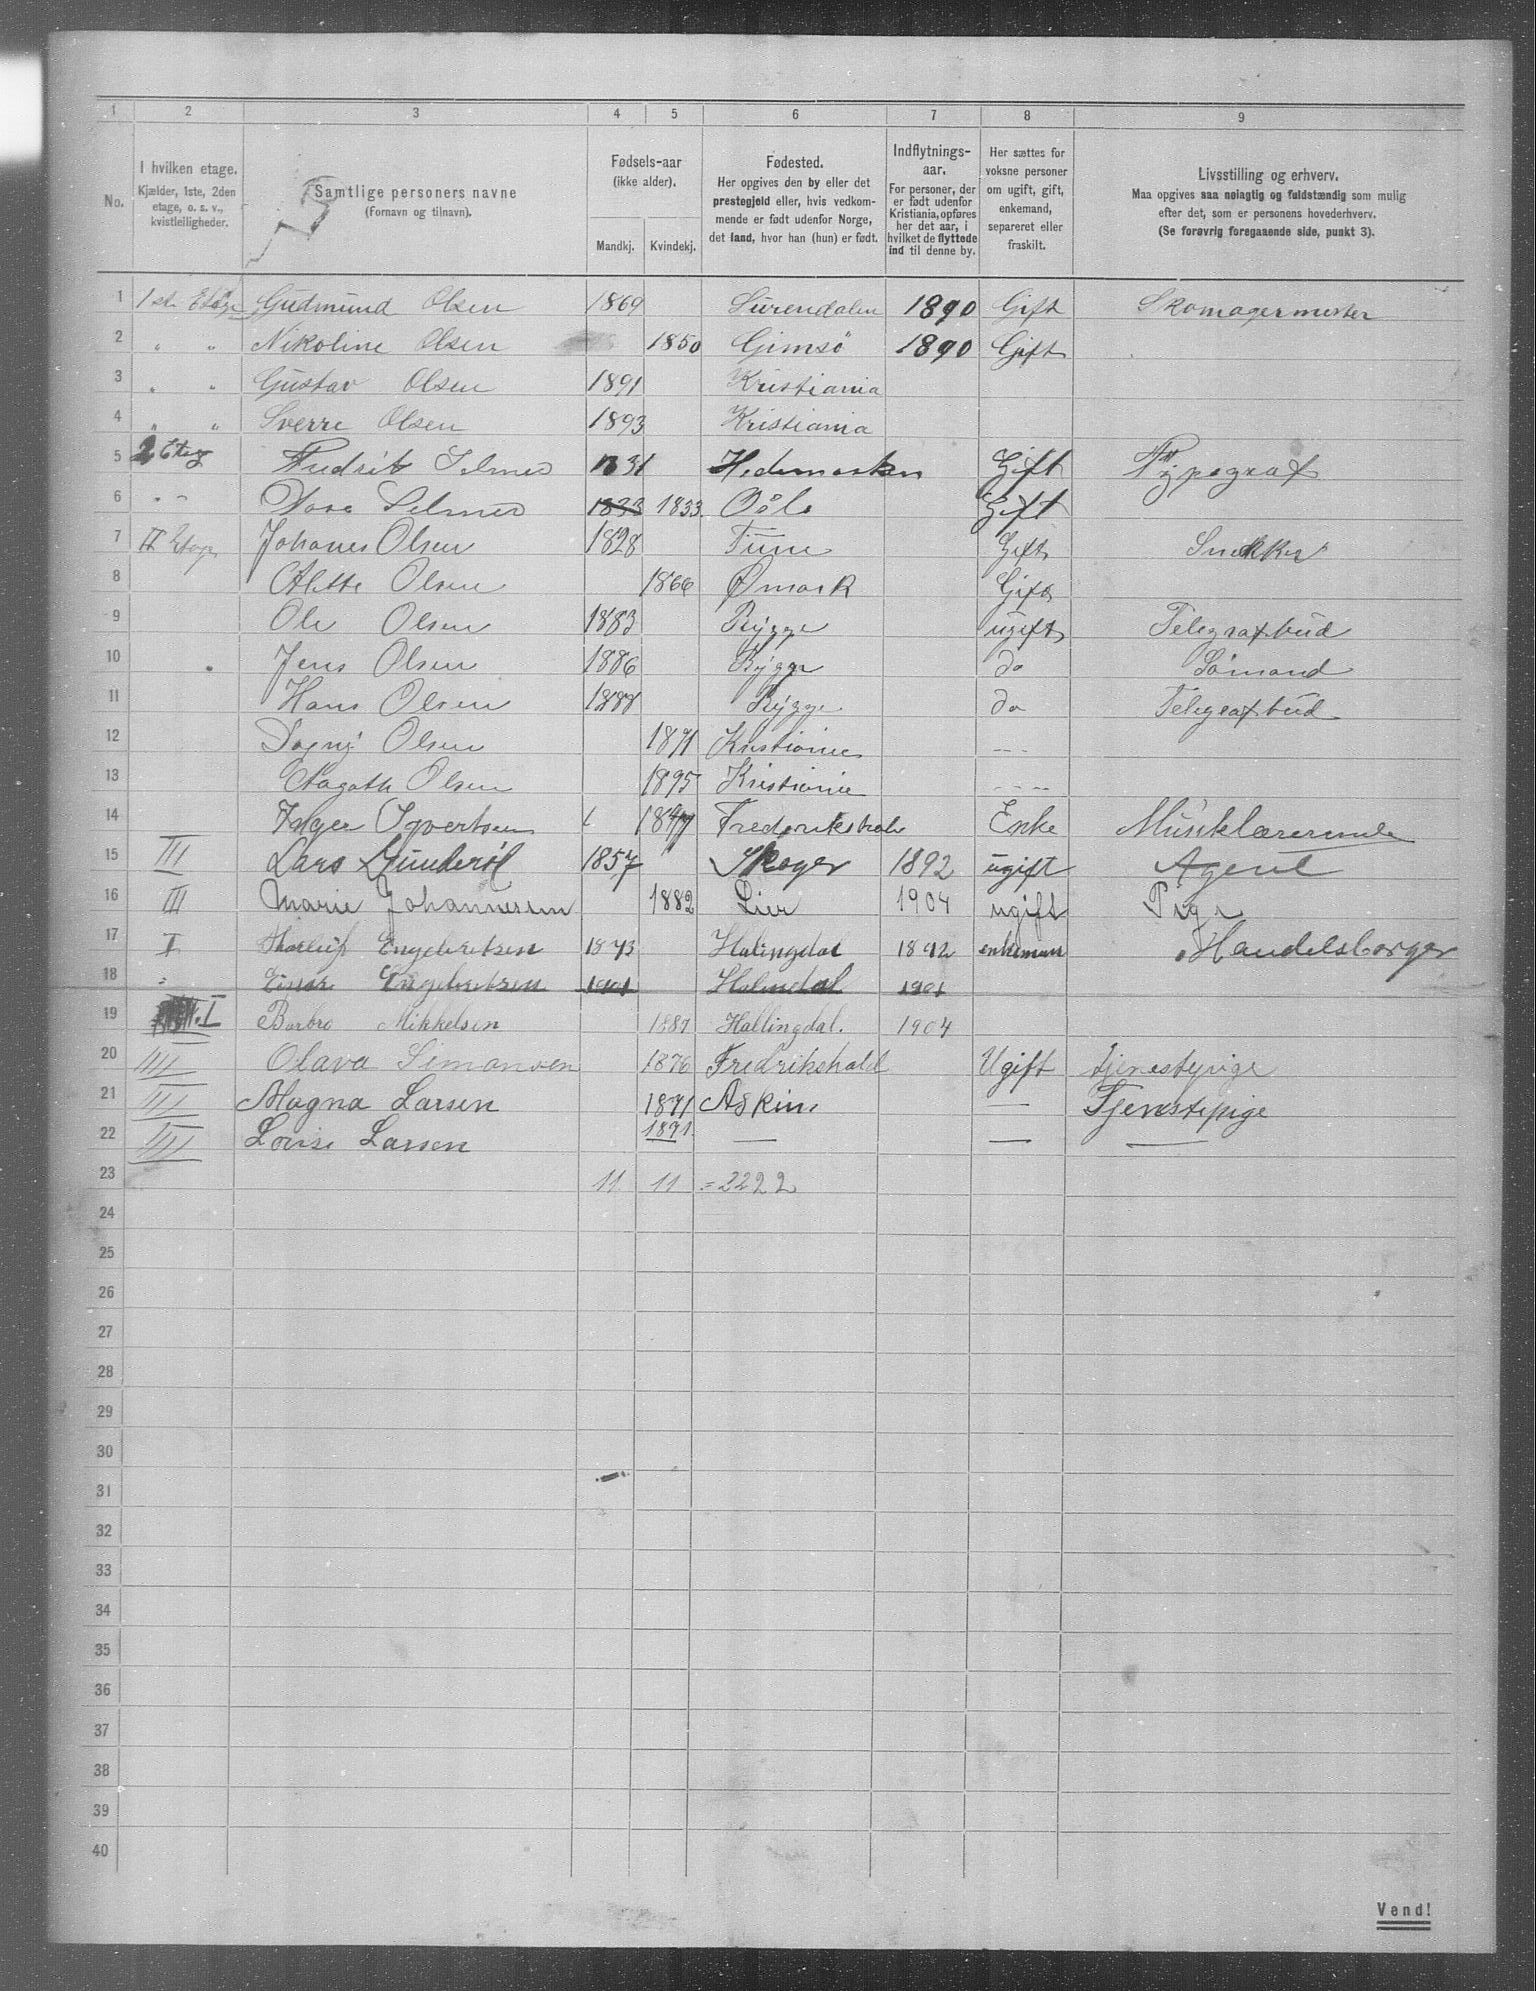 1 2 3 4 5 6 7 8 9
No.
I hvilken etage.
Kjælder, 1ste, 2den
etage, o. s. v.,
kvistleiligheder.
Samtlige personers navne
(Fornavn og tilnavn).
Fødsels-aar
(ikke alder).
Mandkj. Kvindekj.
Fødested.
Her opgives den by eller det
prestegjeld eller, hvis vedkom-
mende er født udenfor Norge,
det land, hvor han (hun) er født.
Indflytnings-
aar.
For personer, der
er født udenfor
Kristiania, opføres
her det aar, i
hvilket de flyttede
ind til denne by.
Her sættes for
voksne personer
om ugift, gift,
enkemand,
separeret eller
fraskilt.
Livsstilling og erhverv.
Maa opgives saa nøiagtig og fuldstændig som mulig
efter det, som er personens hovederhverv.
(Se forøvrig foregaaende side, punkt 3).
1 1ste Etage Gudmund Olsen 1869 Surendalen 1890 Gift Skomagermester
2 " " Nikoline Olsen 1850 Gimsø 1890 Gift
3 " " Gustav Olsen 1891 Kristiania
4 " " Sverre Olsen 1893 Kristiania
5 2 Etag Fredrik Selmer 1831 Hedemarken Gift Typograf
6 " " Selmer 1833 1833. Oslo Gift
7 II Etage Johanes Olsen 1828 Tune Gift Snekker
8 Olsen 1866 Ømark Gift
9 Ole Olsen 1883 Rygge ugift Telegrafbud
10 Jens Olsen 1886 Rygge do Sømand
11 Hans Olsen 1888 Rygge do Telegrafbud
12 Dagny Olsen 1891 Kristiania - - -
13 Aagoth Olsen 1895 Kristiania - - - -
14 Ingvertsen 1847 Frederikshald Enke Musiklærerinde
15 III Lars 1857 Skoger 1892 ugift Agent
16 III Marie Johannessen 1882 Lier 1904 ugift Pige
17 I Engebretsen 1873 Halingdal 1892 enkeman Handelsborger
18 " Einar Engebretsen 1901 Halindal 1901
19 I Barbro Mikkelsen 1887 Hallingdal. 1904
20 III Olava Simonsen 1876 Fredrikshald Ugift tjenestepige
21 III Magna Larsen 1871 Askim — Tjenestepige
22 III Lovise Larsen 1891 — — —
23 11 11 = 2222
24
25
26
27
28
29
30
31
32
33
34
35
36
37
38
39
40
Vend!